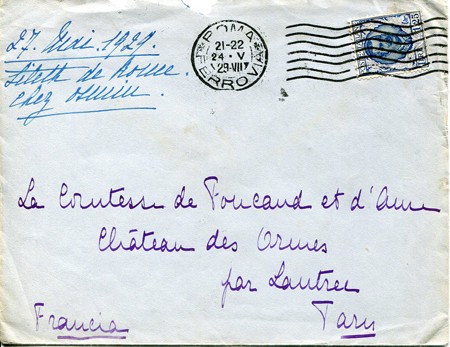 27. Mai. 1929.
de Rome.
chez
ROMA
21-22
24·V
29·VII
FERROVIA
La Comtesse de Foucaud et d'Aure
Château des Ormes
par Lautrec
Tarn
Francia